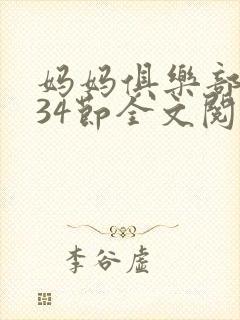 妈妈俱樂部
34節全文閱
李谷虛